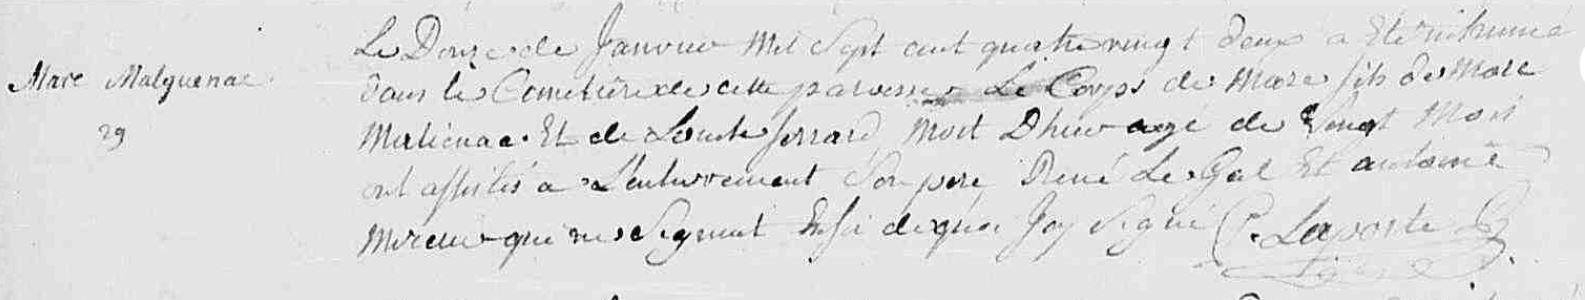 Le Douze de Janvier Mil Sept cent quatre vingt deux a Eté inhumé
Marc Malguenac
dans le Cimetiere de cette paroisse Le Corps de Marc fils de Marc
29
Et de Louise mort D'hier agé de Vingt Mois
ont assistés a L'enterrement Son pere René Le Gal Et antoine
qui ne Signent En foi de quoi J'ay Signé P. Laporte